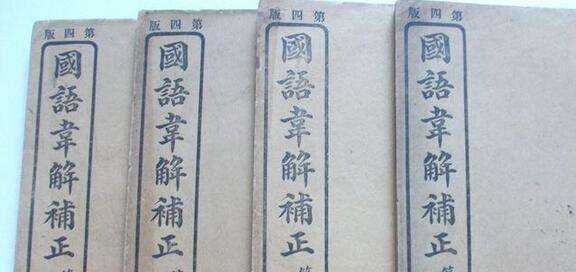 第四版
國語韋解補正
第四版
國語韋解補正
第四版
國語韋解補正
第四版
國語韋解補正